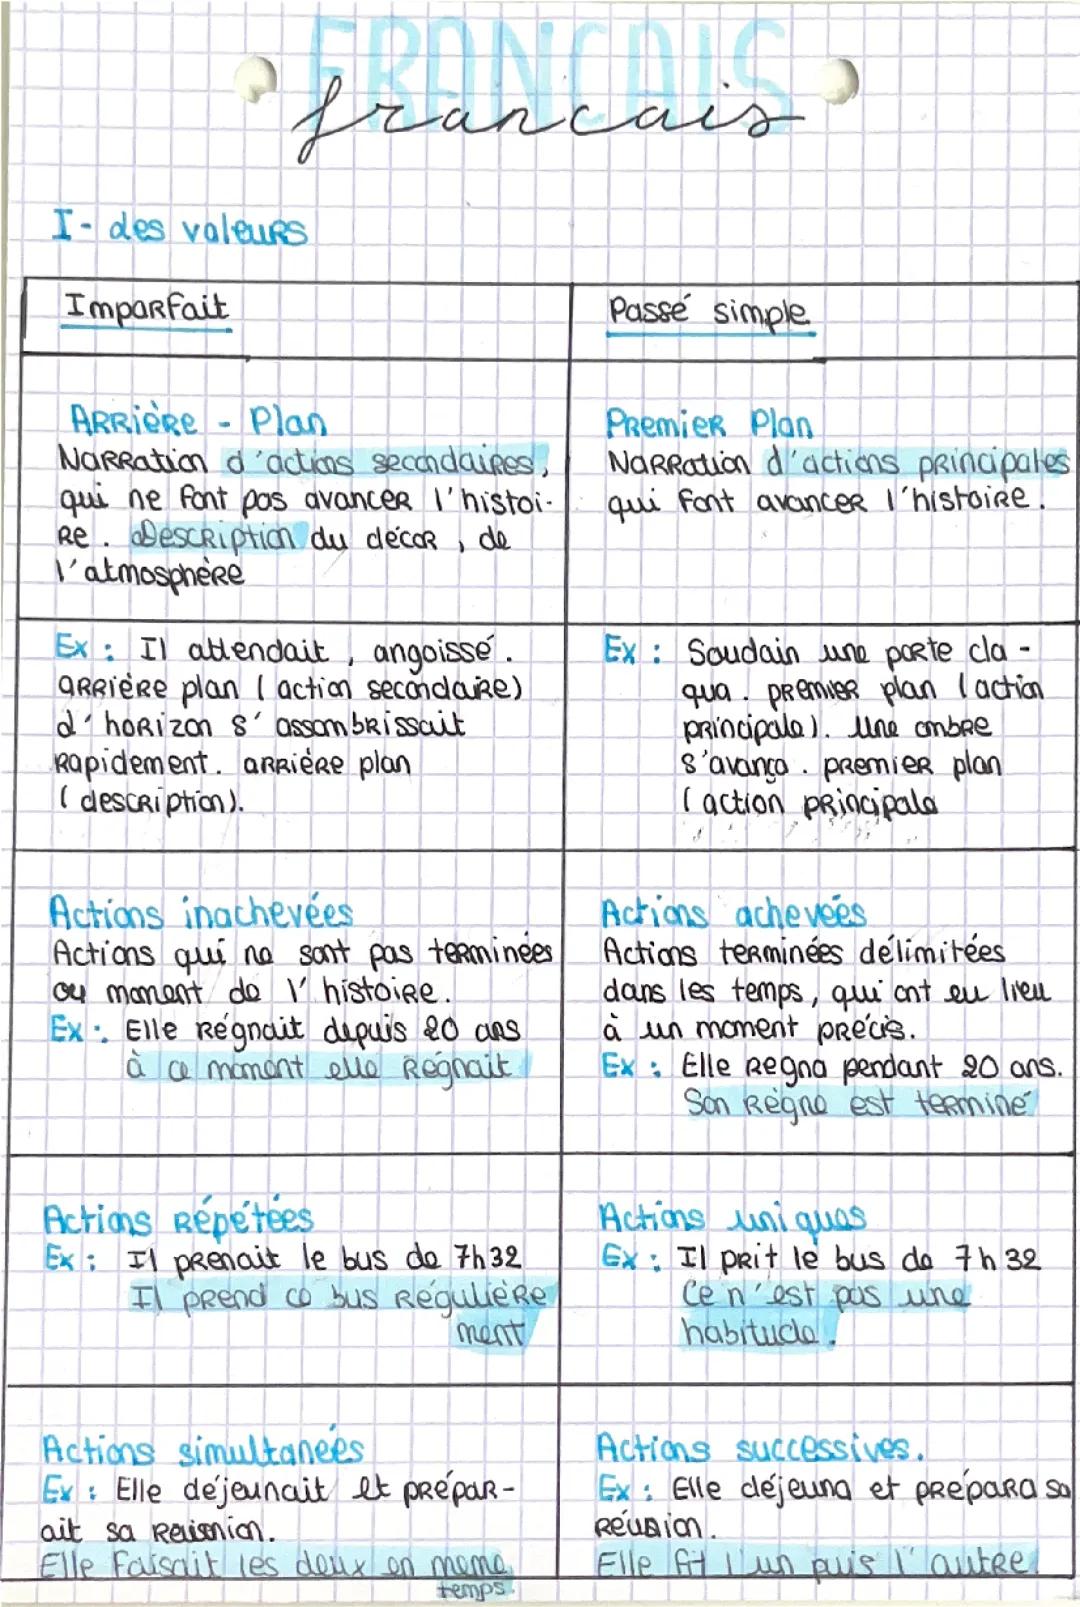 FRANCAIS
francais
I - des valeurs
Imparfait
Passé simple
Arrière - Plan
Narration d'actions secondaires,
qui ne font pas avancer l'histoi-
re. Description du décor, de
l'atmosphère
Premier Plan
Narration d'actions principales
qui font avancer l'histoire.
Ex : Il attendait, angoissé.
arrière plan (action secondaire)
L'horizon s'assombrissait
rapidement. arrière plan
(description).
Ex : Soudain une porte cla-
qua. premier plan (action
principale). Une ombre
s'avança. premier plan
(action principale
Actions inachevées
Actions qui ne sont pas terminées
au moment de l'histoire.
Ex : Elle régnait depuis 20 ans
à ce moment elle régnait
Actions achevées
Actions terminées délimitées
dans les temps, qui ont eu lieu
à un moment précis.
Ex : Elle regna pendant 20 ans.
Son règne est terminé
Actions répétées
Ex : Il prenait le bus de 7h32
Il prend ce bus régulière
ment
Actions uniques
Ex : Il prit le bus de 7h32
Ce n'est pas une
habitude.
Actions simultanées
Ex : Elle déjeunait et prépar-
ait sa réunion.
Elle faisait les deux en meme
temps.
Actions successives.
Ex : Elle déjeuna et prépara sa
réunion.
Elle fit l'un puis l'autre.